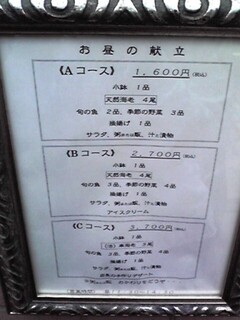 お昼の献立
《Aコース》 1,600円(税込)
小鉢 1品
天然海老 4尾
旬の魚 2品、季節の野菜 3品
掻揚げ 1品
サラダ、粥または飯、汁と漬物
《Bコース》 2,700円(税込)
小鉢 1品
天然海老 4尾
旬の魚 3品、季節の野菜 4品
掻揚げ 1品
サラダ、粥または飯、汁と漬物
アイスクリーム
《Cコース》 3,700円(税込)
小鉢 1品
海老 3尾
旬の魚 4品、季節の野菜 4品
掻揚げ 1品
サラダ、粥または飯、汁と漬物